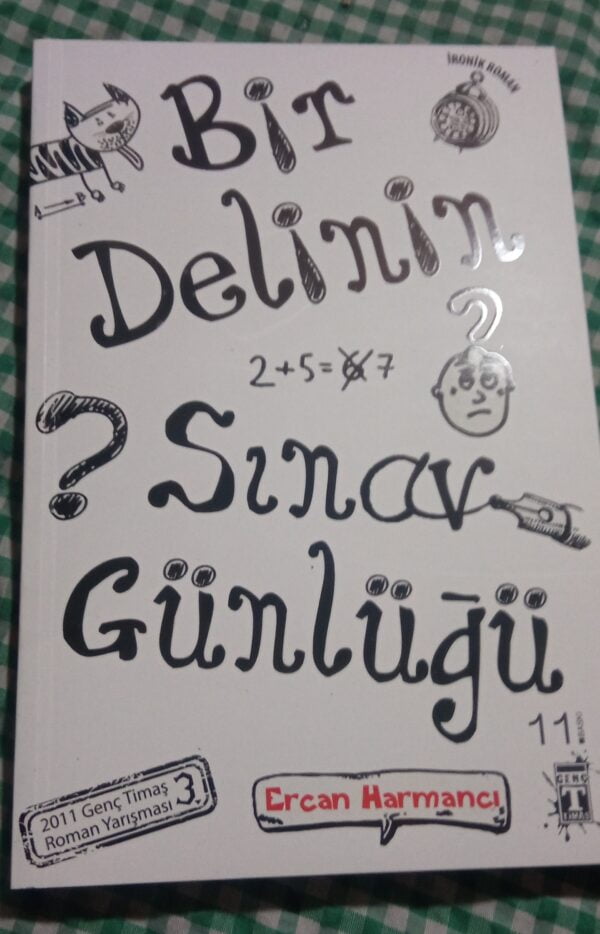 İRONİK ROMAN
Bir
Delinin
2+5=6 7
?
Sınav
Günlüğü
11.
BASKI
2011 Genç Timaş
Roman Yarışması 3
Ercan Harmancı
GENÇ
T
TİMAŞ
A B